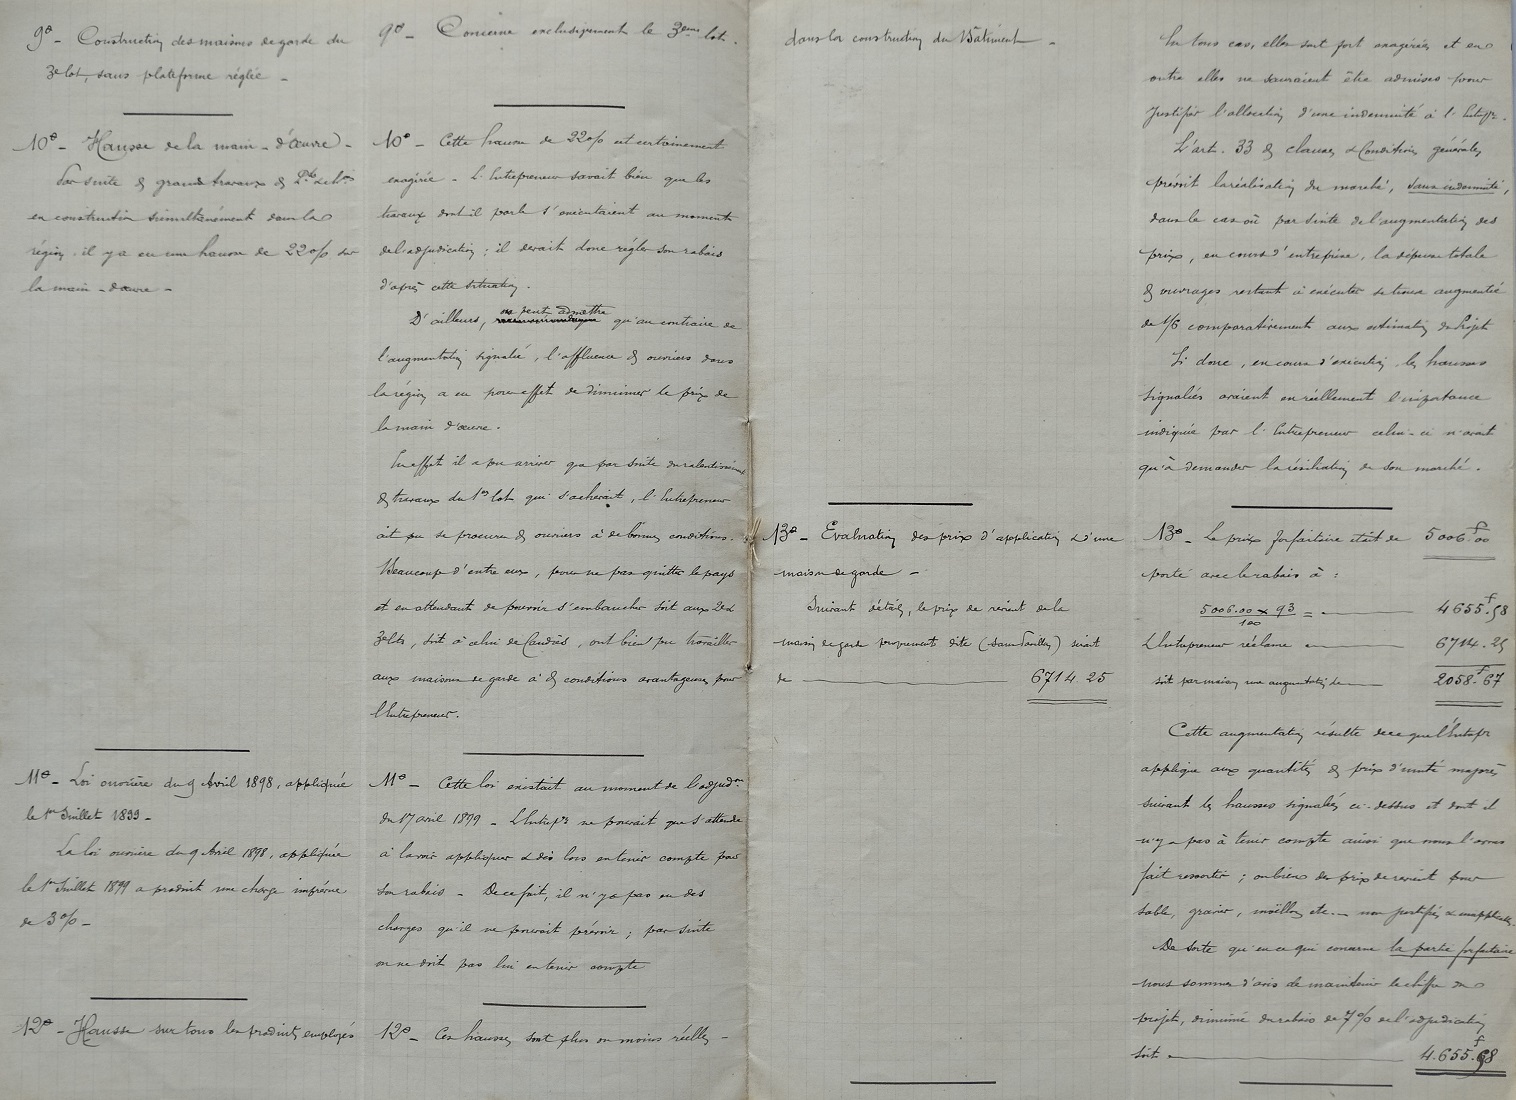 9° - Construction des maisons de garde du
3e lot, sans plateforme réglée -
10° - Hausse de la main - d'œuvre -
Par suite de grands travaux de
en construction simultanément dans la
région, il y a eu une hausse de 22 0/0 sur
la main - d'œuvre -
11° - Loi ouvrière du 9 Avril 1898, appliquée
le 1er Juillet 1899 -
La loi ouvrière du 9 Avril 1898, appliquée
le 1er Juillet 1899 a produit une charge imprévue
de 3 0/0 -
12° - Hausse sur tous les produits employés
9° - Concerne exclusivement le 3eme lot.
10° - Cette hausse de 22 0/0 est certainement
exagérée - L'Entrepreneur savait bien que les
travaux dont il parle s'exécutaient au moment
de l'adjudication ; il devait donc régler son rabais
d'après cette situation.
D'ailleurs, on peut admettre qu'au contraire de
l'augmentation signalée, l'affluence des ouvriers dans
la région a eu pour effet de diminuer le prix de
la main d'œuvre.
En effet il a pu arriver que par suite du ralentissement
des travaux du 1er lot qui s'achevait, l'Entrepreneur
ait pu se procurer des ouvriers à de bonnes conditions.
Beaucoup d'entre eux, pour ne pas quitter le pays
et en attendant de pouvoir s'embaucher soit aux 2e &
3e lots, soit à celui de Caudiès, ont bien pu travailler
aux maisons de garde à des conditions avantageuses pour
l'Entrepreneur.
11° - Cette loi existait au moment de l'adjudon
du 17 avril 1899 - L'Entrepr ne pouvait que s'attendre
à la voir appliquer & dès lors en tenir compte par
son rabais - De ce fait, il n'y a pas eu des
charges qu'il ne pouvait prévoir ; par suite
on ne doit pas lui en tenir compte
12° - Ces hausses sont plus ou moins réelles -
dans la construction du Bâtiment -
13° - Evaluation des prix d'application d'une
maison de garde -
Suivant détails, le prix de revient de la
maison de garde proprement dite (sans fouilles) serait
de 6714 25
En tous cas, elles sont fort exagérées et en
outre elles ne sauraient être admises pour
justifier l'allocation d'une indemnité à l'Entrepr.
L'art. 33 des clauses & Conditions générales
prévoit la réalisation du marché, sans indemnité,
dans le cas où par suite de l'augmentation des
prix, en cours d'entreprise, la dépense totale
des ouvrages restant à exécuter se trouve augmentée
de 1/6 comparativement aux estimations du Projet
Si donc, en cours d'exécution, les hausses
signalées avaient eu réellement l'importance
indiquée par l'Entrepreneur celui-ci n'avait
qu'à demander la résiliation de son marché.
13° - Le prix forfaitaire était de 5006f.00
porté avec le rabais à :
5006.00 x 93 / 100 = 4655f.58
L'Entrepreneur réclame 6714.25
soit par maison une augmentation de 2058f.67
Cette augmentation résulte de ce que l'Entrepr
applique aux quantités des prix d'unité majorés
suivant les hausses signalées ci-dessus et dont il
n'y a pas à tenir compte ainsi que nous l'avons
fait ressortir ; ou bien des prix de revient pour
sable, gravier, moëllons, etc. - non justifiés & inapplicables.
De sorte qu'en ce qui concerne la partie forfaitaire
nous sommes d'avis de maintenir le chiffre du
projet, diminué du rabais de 7 0/0 de l'adjudication
soit 4.655f.58